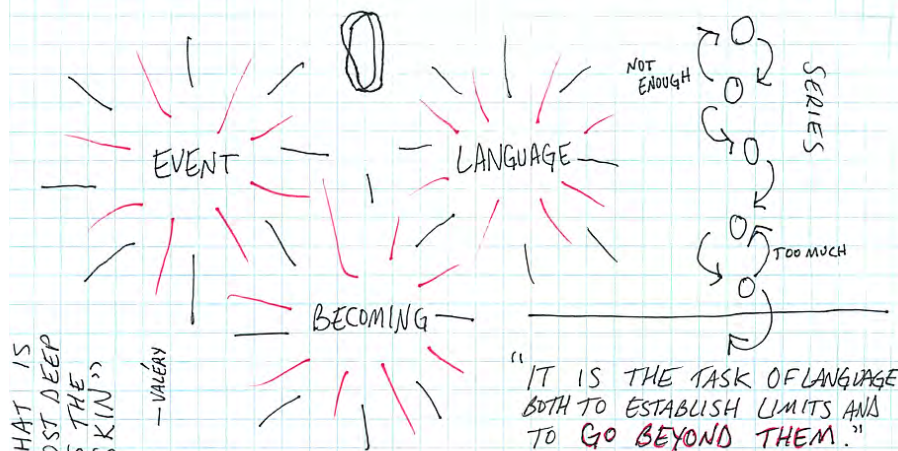 EVENT
LANGUAGE
BECOMING
NOT
ENOUGH
SERIES
TOO MUCH
"IT IS THE TASK OF LANGUAGE
BOTH TO ESTABLISH LIMITS AND
TO GO BEYOND THEM."
HAT IS
OST DEEP
THE
KIN"
— VALÉRY